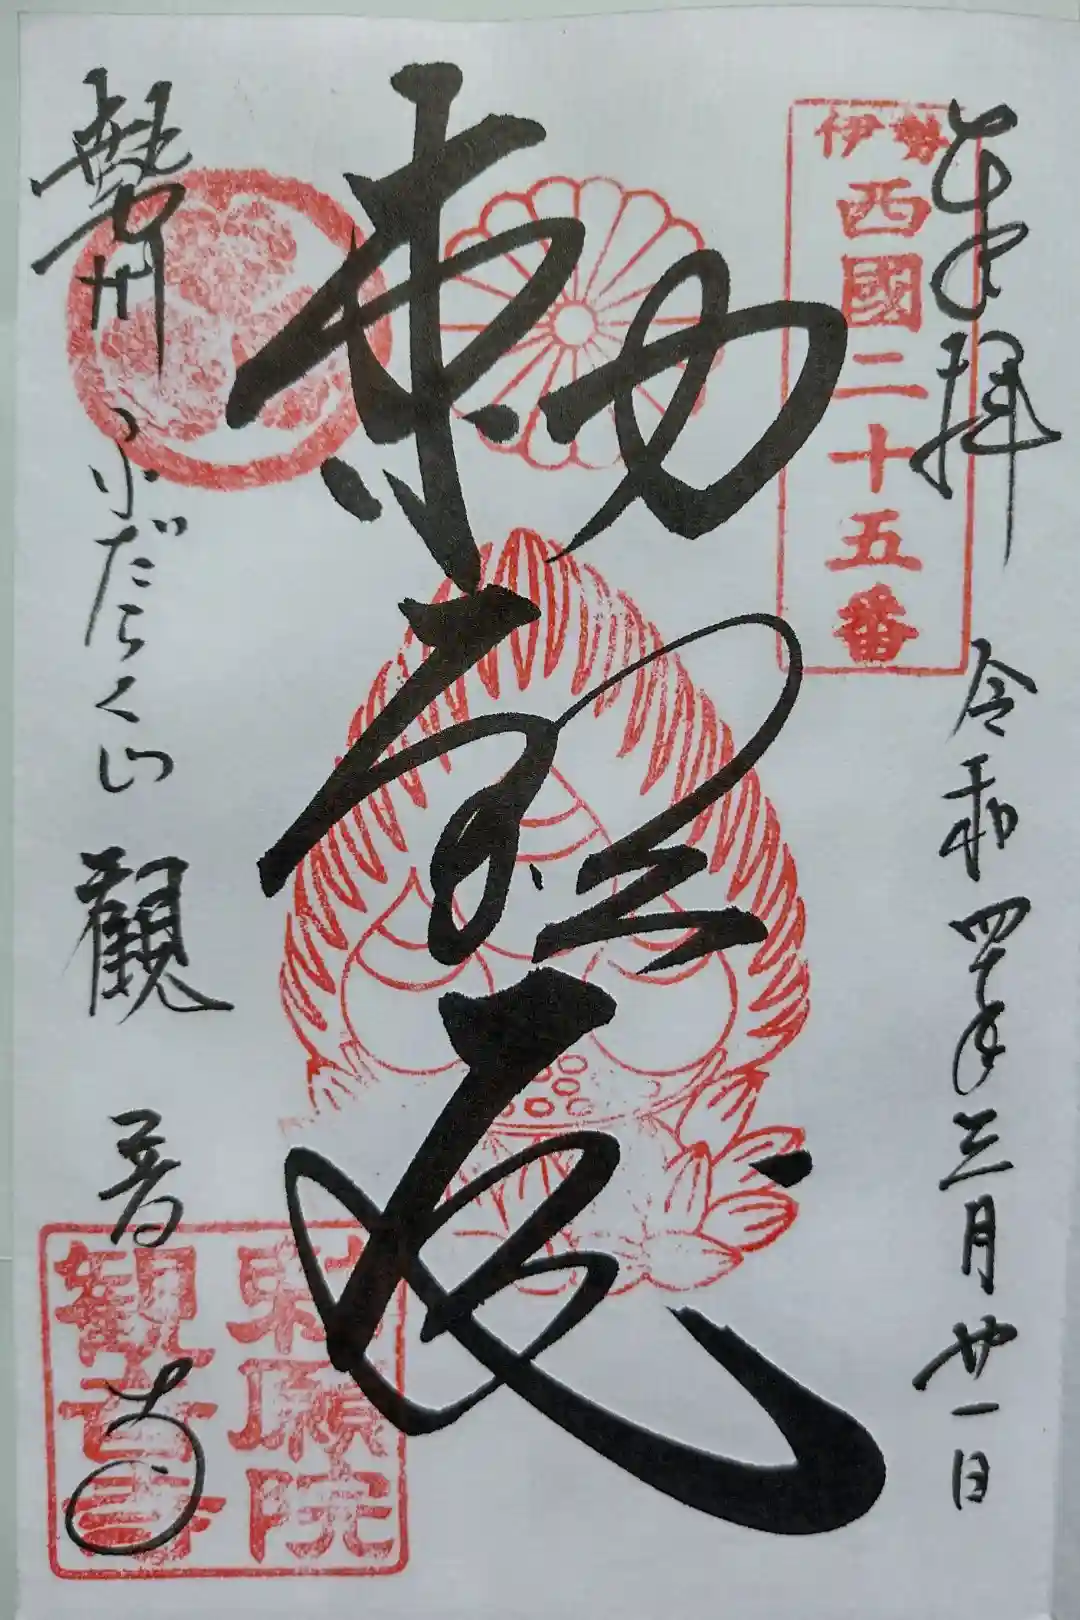 奉拝
令和四年三月廿一日
伊勢
西國二十五番
勅願
勢州
ふだらく山
觀音寺
勅願院
観音寺